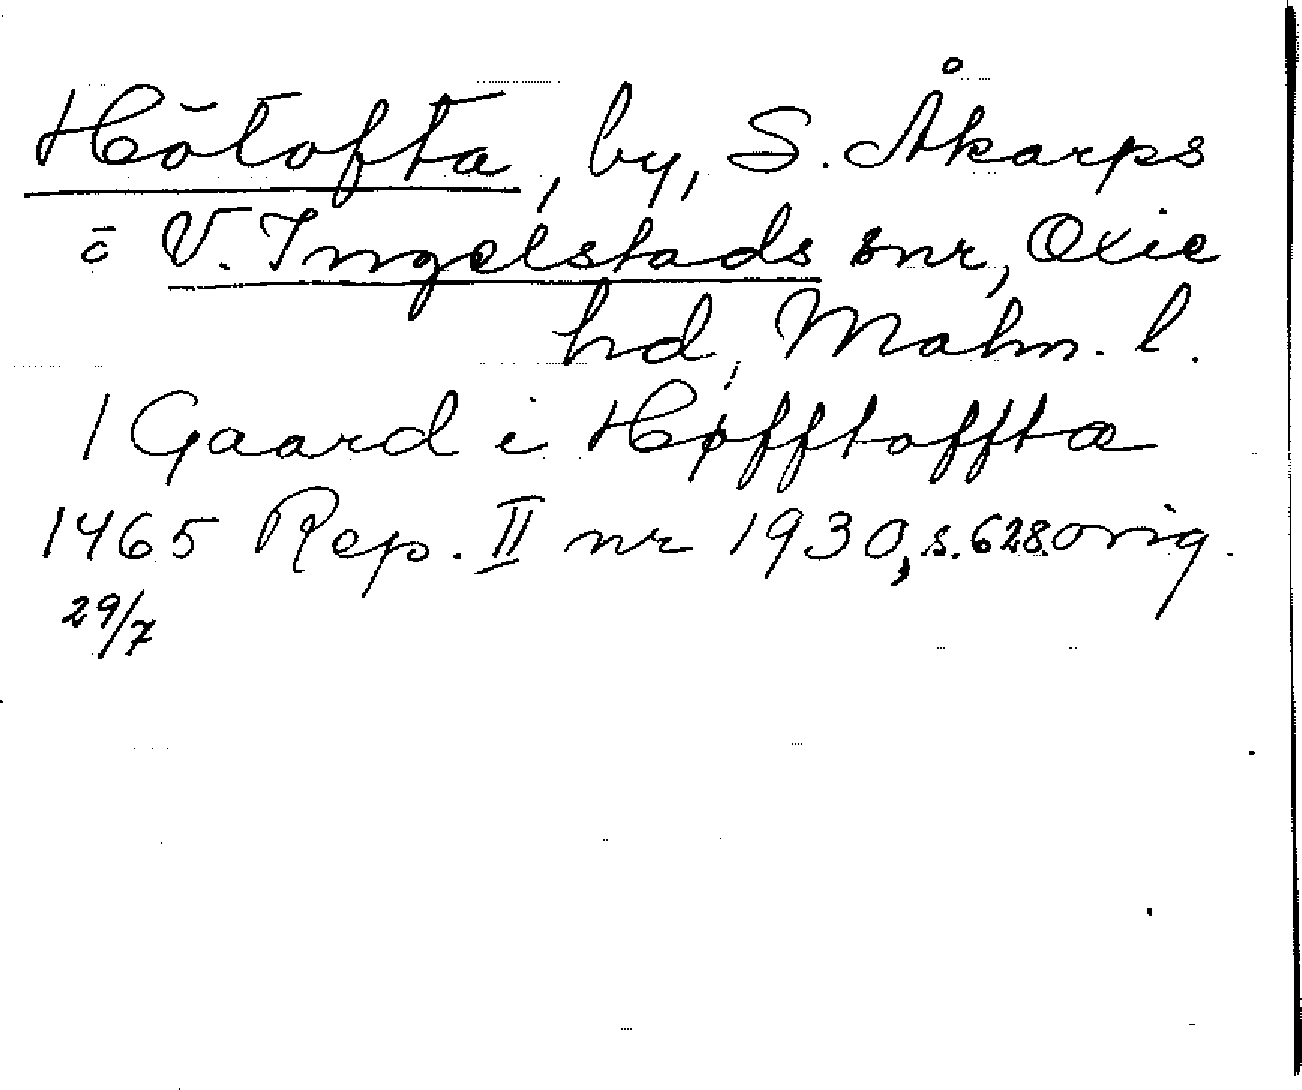 Hötofta, by, S. Åkarps
o V. Ingelstads snr, Oxie
hd, Malm. l.
1 Gaard i Høfftofftæ
1465 Rep. II nr 1930, s. 628. orig.
29/7